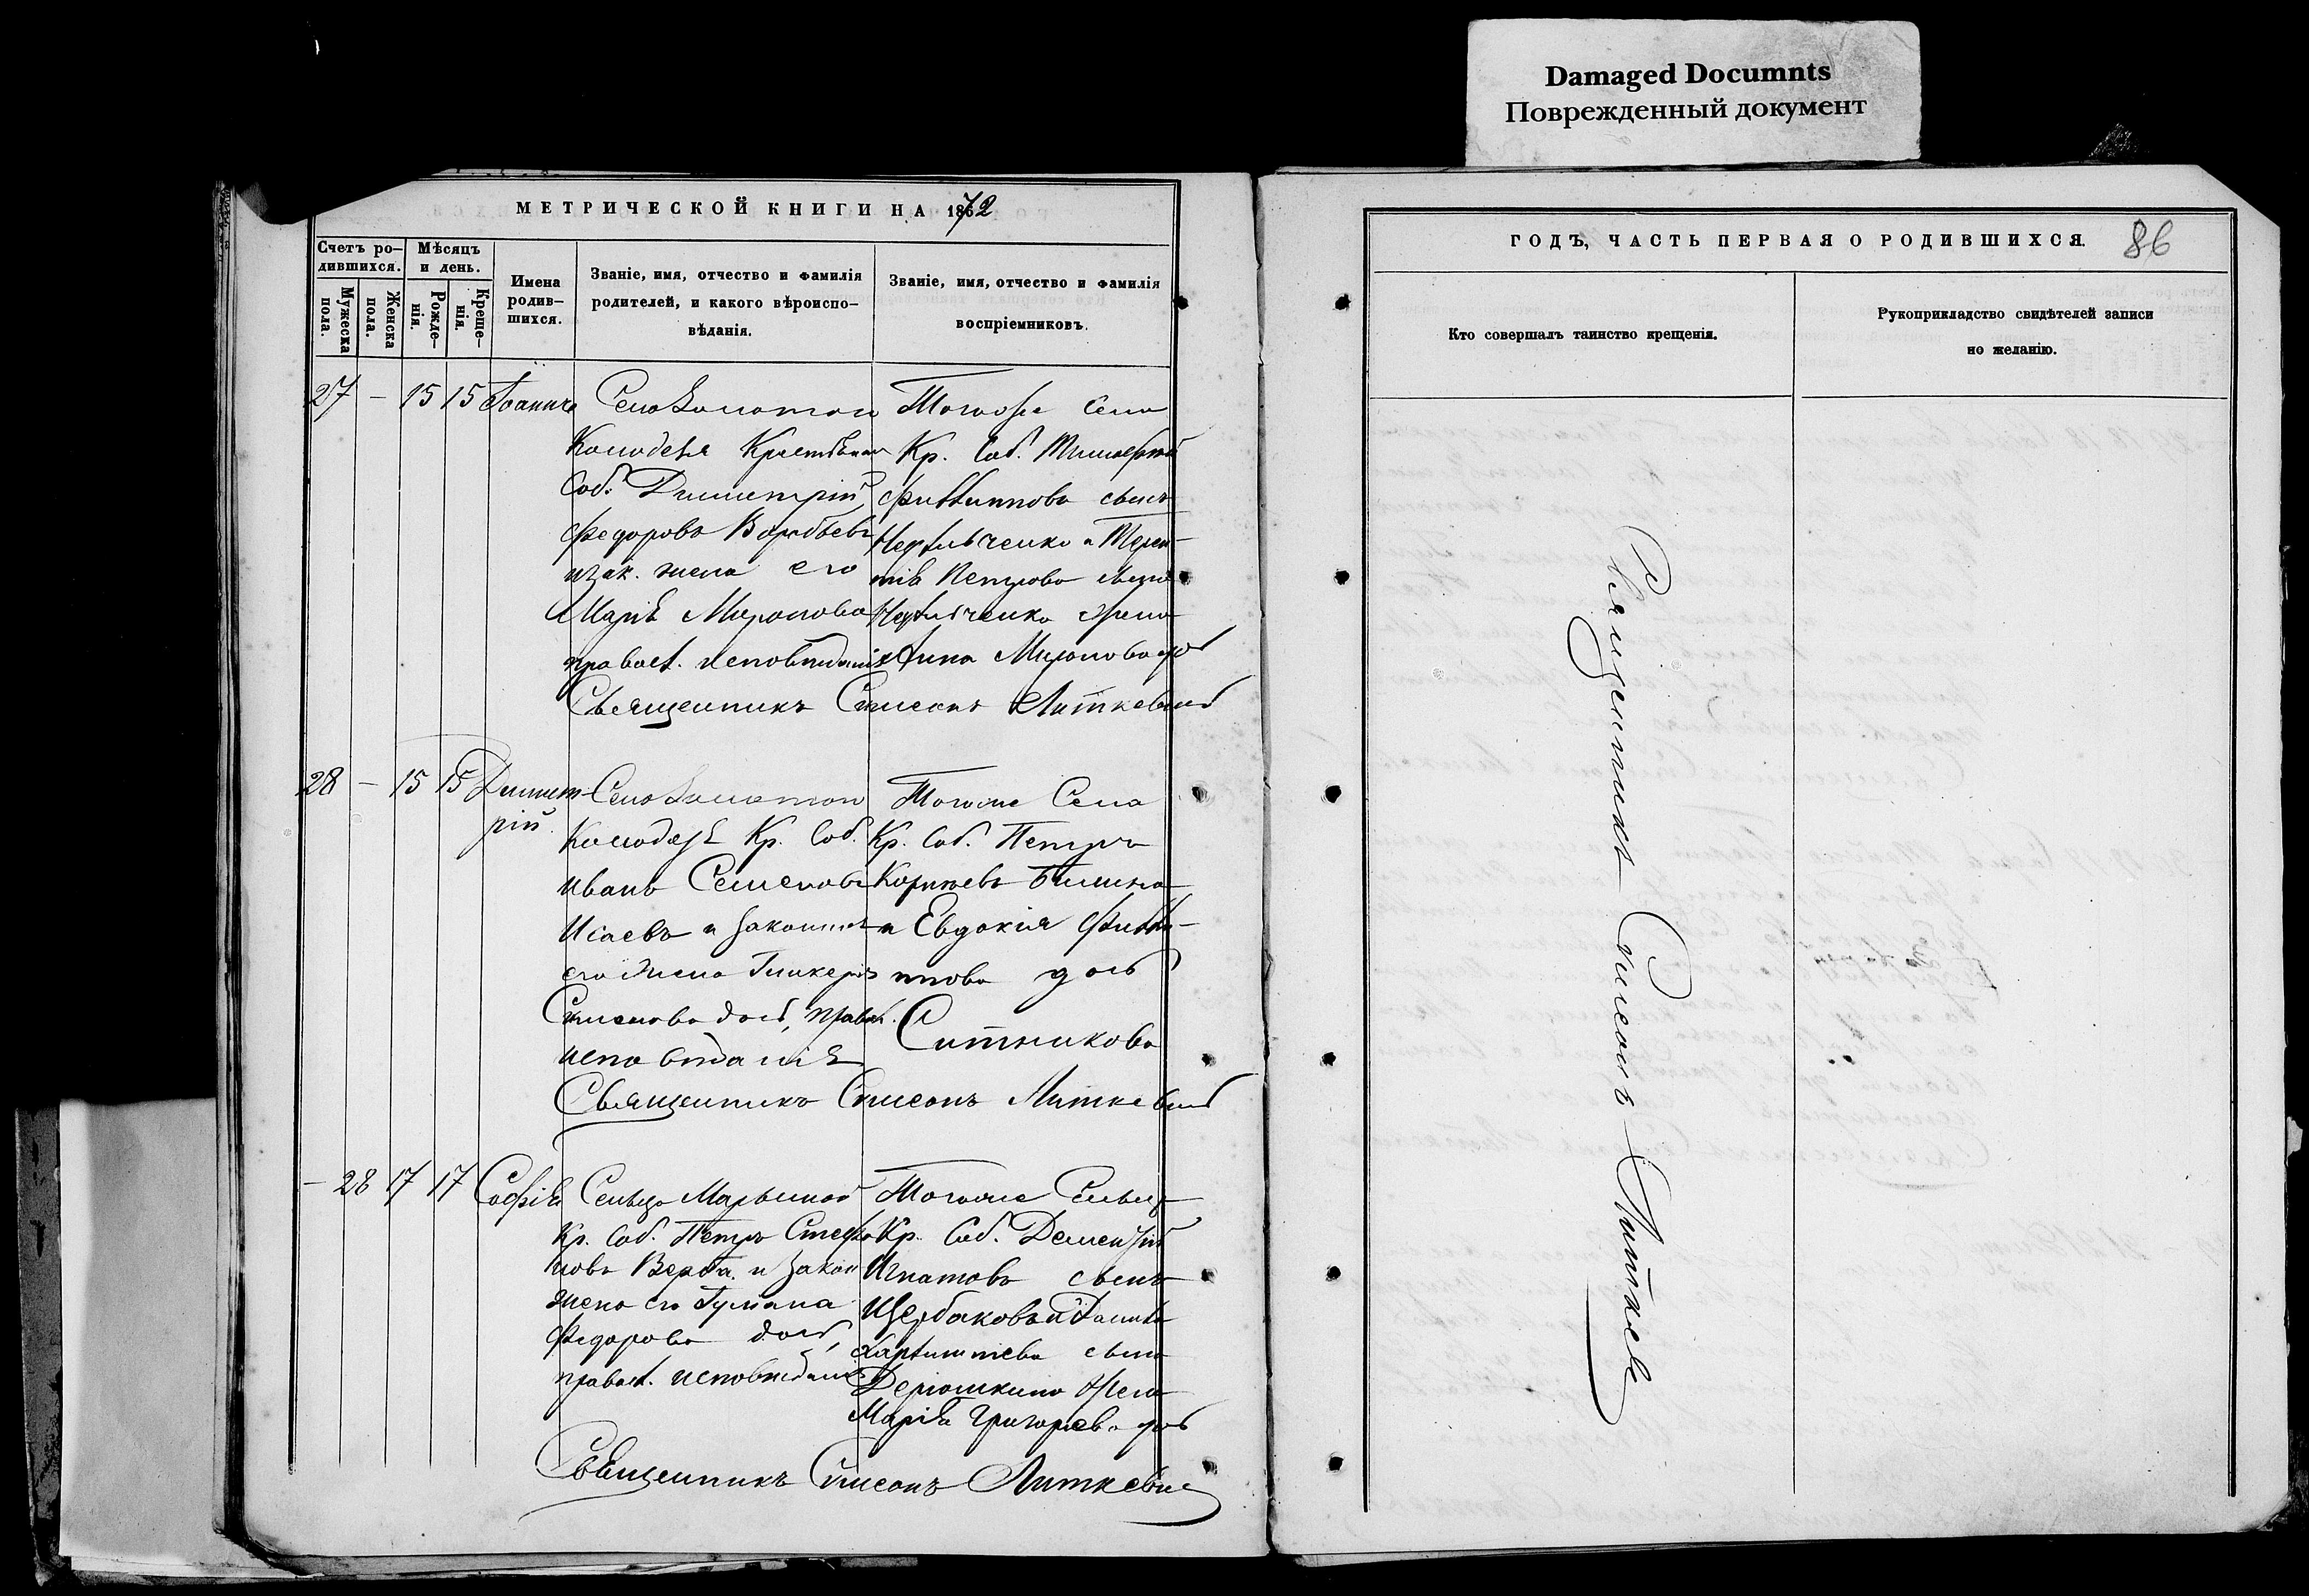 Damaged Documnts
Поврежденный документ
МЕТРИЧЕСКОЙ КНИГИ НА 1872
Счетъ ро-
дившихся.
Мѣсяцъ
и день.
Мужеска
пола.
Женска
пола.
Рожде-
нія.
Креще-
нія.
Имена
родив-
шихся.
Званіе, имя, отчество и фамилія
родителей, и какого вѣроиспо-
вѣданія.
Званіе, имя, отчество и фамилія
воспріемниковъ.
27 - 15 15 Іоаннъ
Село
Колодезя
Соб. Димитрій
Федоровъ Воробьевъ
и зак. жена его
Марія Миронова
правосл. исповѣданія
Тогоже села
Кр. Соб.
Филиппова сынъ
и Терен-
тія Петрова сына
жена
Анна Миронова
Священникъ Симеонъ Литкевичъ
28 - 15 15 Димит-
рій.
Село
Колодезя Кр. Соб.
Иванъ Семеновъ
Исаевъ и законная
его жена Гликерія
Симеонова дочь, правосл.
исповѣданія
Тогоже Села
Кр. Соб. Петръ
и Евдокія Фили-
ппова дочь
Ситникова
Священникъ Симеонъ Литкевичъ
- 28 17 17 Софія
Сельцо Марьиной
Кр. Соб. Петръ Стефа-
новъ Верба и закон
жена его Іуліана
Федорова дочь,
правосл. исповѣданія
Тогоже Сельца
Кр. Соб.
Игнатовъ сынъ
Щербаковъ и
сына
жена
Марія Григорьева
Священникъ Симеонъ Литкевичъ
ГОДЪ, ЧАСТЬ ПЕРВАЯ О РОДИВШИХСЯ.
86
Кто совершалъ таинство крещенія.
Рукоприкладство свидѣтелей записи
по желанію.
Священникъ Симеонъ Литкев